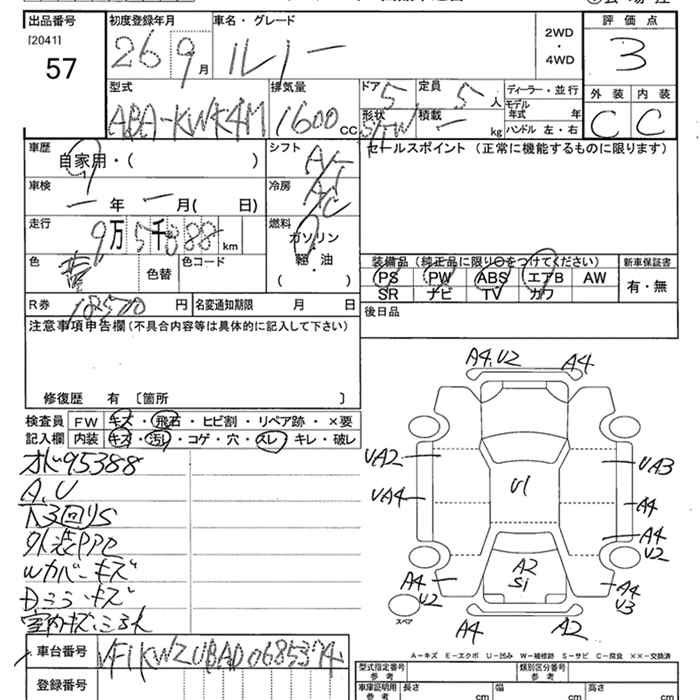 出品番号 初度登録年月 車名・グレード 2WD・4WD 評価点
[2041] 57 26 9月 ルノー 3
型式 排気量 ドア 5 定員 5人 ディーラー・並行 外装 内装
ABA-KWK4M 1600cc 形状 S/TW 積載 — kg モデル年式 年 C C
ハンドル 左・右
車歴 自家用・( ) シフト セールスポイント (正常に機能するものに限ります)
車検 —年 —月( 日) 冷房 A/C
走行 9万5千888km 燃料 ガソリン 軽・油 ( )
色 色替 色コード 装備品 (純正品に限り○をつけてください) 新車保証書
PS PW ABS エアB AW 有・無
SR ナビ TV カワ
R券 円 名変通知期限 月 日 後日品
注意事項申告欄(不具合内容等は具体的に記入して下さい)
修復歴 有 〔箇所 〕
検査員 FW キズ・飛石・ヒビ割・リペア跡・×要
記入欄 内装 キズ・汚レ・コゲ・穴・スレ・キレ・破レ
95388
A、U
外装
Wカバーキズ
室内キズ
車台番号 VF1KWZUBAD0685374
登録番号
A4、U2 A4
UA2 UA3
UA4 U1 A4
A4 U2
A2 S1
A4 U2 A4 U3
スペア
A4 A2
A-キズ E-エクボ U-凹み W-補修跡 S-サビ C-腐食 ××-交換済
型式指定番号 参考 類別区分番号 参考
車庫証明用 参考 長さ cm 幅 cm 高さ cm